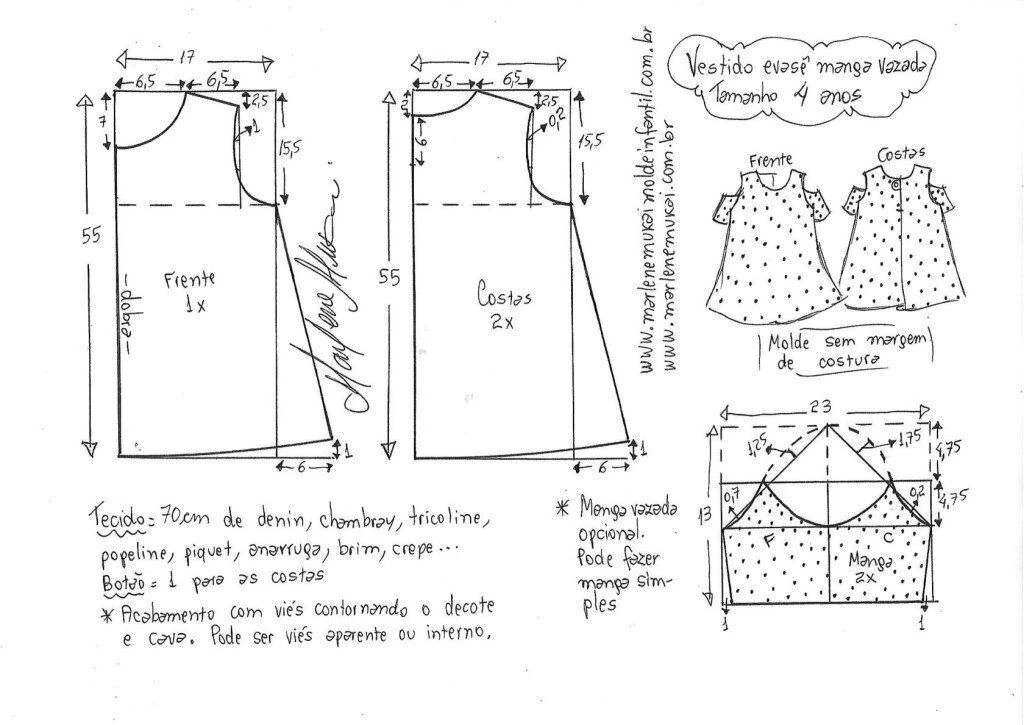 Vestido evasê manga vazada
Tamanho 4 anos
17
6,5 6,5
7
2,5
1
15,5
55
Frente
1x
-dobra-
6
1
17
6,5 6,5
2
2,5
0,2
6
15,5
55
Costas
2x
6
1
www.marlenemukaimoldeinfantil.com.br
www.marlenemukai.com.br
Frente
Costas
Molde sem margem
de costura
23
1,25
1,75
4,75
0,7
0,2
4,75
13
F
C
Manga
2x
1
1
Tecido = 70cm de denin, chambray, tricoline,
popeline, piquet, anarruga, brim, crepe...
Botão = 1 para as costas
* Acabamento com viés contornando o decote
e cava. Pode ser viés aparente ou interno.
* Manga vazada
opcional.
Pode fazer
manga sim-
ples